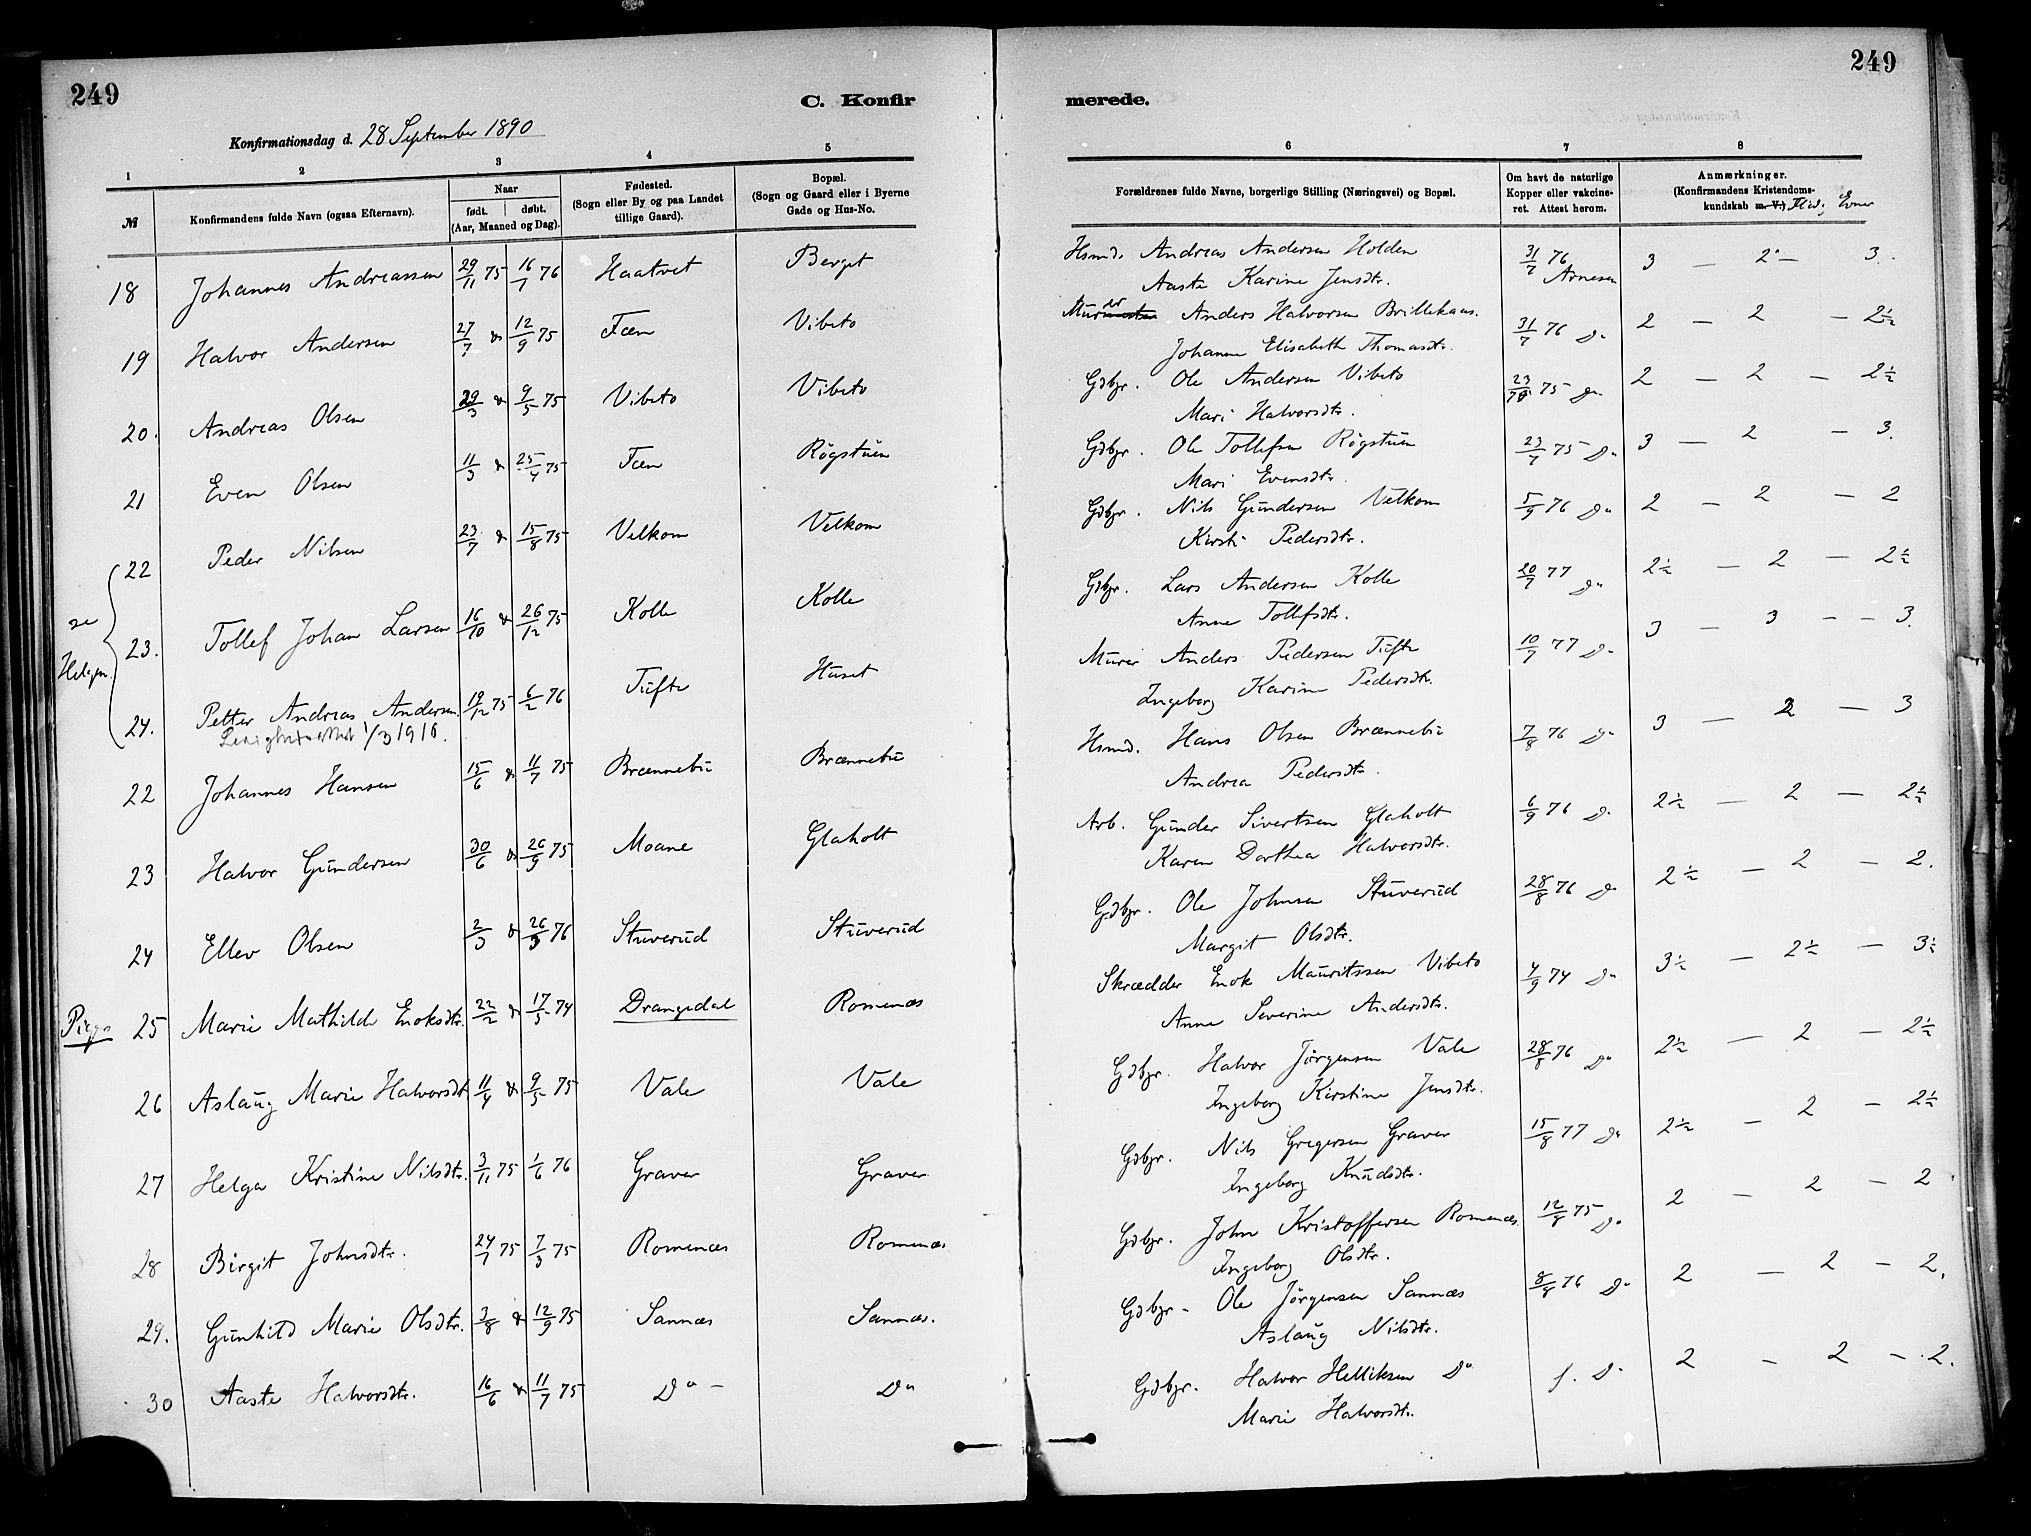 249
249
C. Konfir
merede.
Konfirmationsdag d. 28 September 1890
1 2 3 4 5 6 7 8
№
Konfirmandens fulde Navn (ogsaa Efternavn).
Naar
født. døbt.
(Aar, Maaned og Dag).
Fødested.
(Sogn eller By og paa Landet
tillige Gaard).
Bopæl.
(Sogn og Gaard eller i Byerne
Gade og Hus-No.
Forældrenes fulde Navne, borgerlige Stilling (Næringsvei) og Bopæl.
Om havt de naturlige
Kopper eller vakcine-
ret. Attest herom.
Anmærkninger.
(Konfirmandens Kristendoms-
kundskab m. V.) Flid, Evner
18 Johannes Andreassen 29/11 75 16/1 76 Haatvet Berget Hsmd. Andreas Andersen Holden 31/7 76 Arnesen 3 — 2 — 3.
Aaste Karine Jensdtr.
19 Halvor Andersen 27/7 & 12/9 75 Fæn Vibeto Murer Anders Halvorsen Brillekaas. 31/7 76 Do 2 — 2 — 2½
Johanne Elisabeth Thomasdtr.
20. Andreas Olsen 29/3 & 9/5 75 Vibeto Vibeto Gdbgr. Ole Andersen Vibeto 75 Do 2 — 2 — 2½
Mari Halvorsdtr.
21 Even Olsen 11/3 & 25/4 75 Fæn Røgstuen Gdbgr. Ole Tollefsen Røgstuen 23/7 75 Do 3 — 2 — 3.
Mari Evensdtr.
22 Peder Nilsen 23/7 & 15/8 75 Velkom Velkom Gdbgr. Nils Gundersen Velkom 5/9 76 Do 2 — 2 — 2
Kirsti Pedersdtr.
se Helgen.
23. Tollef Johan Larsen 16/10 & 26/12 75 Kolle Kolle Gdbgr. Lars Andersen Kolle 20/7 77 Do 2½ — 2 — 2½
Anne Tollefsdtr.
24. Petter Andreas Andersen. 19/12 75 6/2 76 Tufte Huset Murer Anders Pedersen Tufte 10/7 77 Do 3 — 3 — — 3.
1/3 1916.
Ingeborg Karine Pedersdtr.
22 Johannes Hansen 15/6 & 11/7 75 Brænnebu Brænnebu Hsmd. Hans Olsen Brænnebu 7/8 76 Do 3 — 2 — 3
Andrea Pedersdtr.
23 Halvor Gundersen 30/6 & 26/9 75 Moane Glaholt Arb. Gunder Sivertsen Glaholt 6/9 76 Do 2½ — 2 — 2½
Karen Dorthea Halvorsdtr.
24 Ellev Olsen 2/3 & 26/3 76 Stuverud Stuverud Gdbgr. Ole Johnsen Stuverud 28/8 76 Do 2½ — 2 — 2.
Margit Olsdtr.
Piger
25 Marie Mathilde Enoksdtr. 22/2 & 17/5 74 Drangedal Romenæs Skrædder Enok Mauritssen Vibeto 4/9 74 Do 3½ — 2½ — 3½
Anne Severine Andersdtr.
26 Aslaug Marie Halvorsdtr 11/4 & 9/5 75 Vale Vale Gdbgr. Halvor Jørgensen Vale 28/8 76 Do 2½ — 2 — 2½
Ingeborg Kirstine Jensdtr.
27 Helga Kristine Nilsdtr. 3/11 75 1/6 76 Graver Graver Gdbgr. Nils Gregersen Graver 15/8 77 Do 2½ — 2 — 2½
Ingeborg Knudsdtr.
28 Birgit Johnsdtr. 24/1 75 7/3 75 Romenæs Romenæs Gdbgr. John Kristoffersen Romenæs. 12/8 75 Do 2 — 2 — 2
Ingeborg Olsdtr.
29. Gunhild Marie Olsdtr. 3/8 & 12/9 75 Sannæs Sannæs. Gdbgr. Ole Jørgensen Sannæs 8/8 76 Do 2 — 2 — 2.
Aslaug Nilsdtr.
30 Aaste Halvorsdtr. 16/6 & 11/7 75 Do — Do Gdbgr. Halvor Helliksen Do f. Do 2 — 2 — 2.
Marie Halvorsdtr.